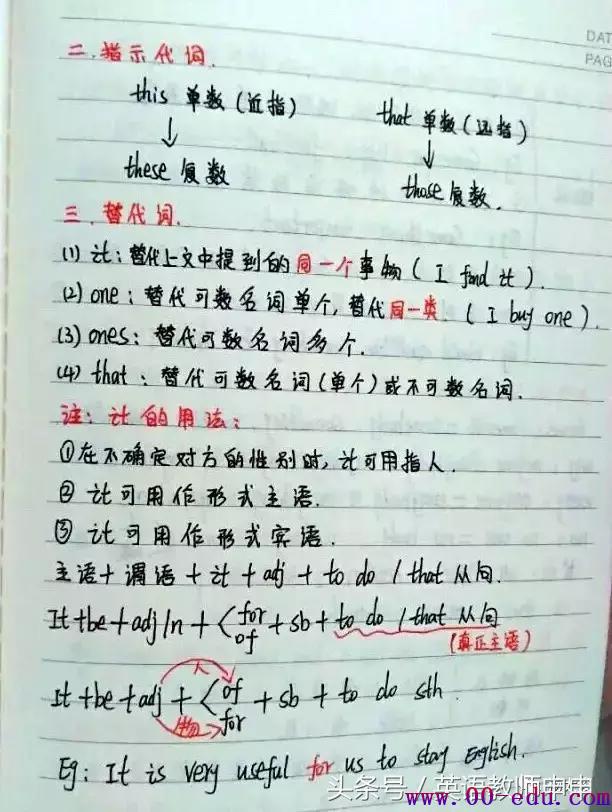 DAT
PAG
二. 指示代词.
this 单数(近指) that 单数(远指)
↓ ↓
these 复数 those 复数.
三. 替代词.
(1) it: 替代上文中提到的同一个事物( I find it ).
(2) one: 替代可数名词单个, 替代同一类. ( I buy one ).
(3) ones: 替代可数名词多个.
(4) that: 替代可数名词(单个)或不可数名词.
注: it 的用法:
①在不确定对方的性别时, it可用指人.
② it可用作形式主语.
③ it可用作形式宾语.
主语+谓语+it+adj+to do / that 从句.
It+be+adj/n+<for/of+sb+to do / that 从句
(真正主语)
人
It+be+adj+<of/for+sb+to do sth.
物
Eg: It is very useful for us to stay English.
头条号 / 英语教师中中
www.00-edu.com